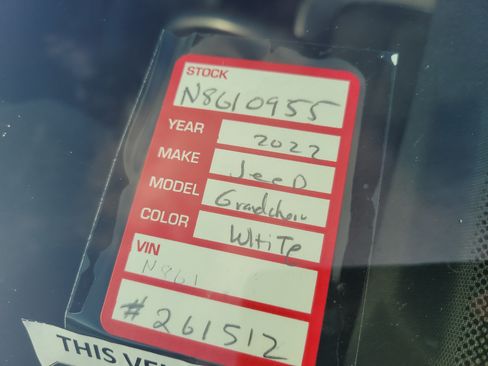 STOCK
N8610955
YEAR 2022
MAKE Jeep
MODEL Grandcheru
COLOR WHITE
VIN
N861
#261512
THIS VEH